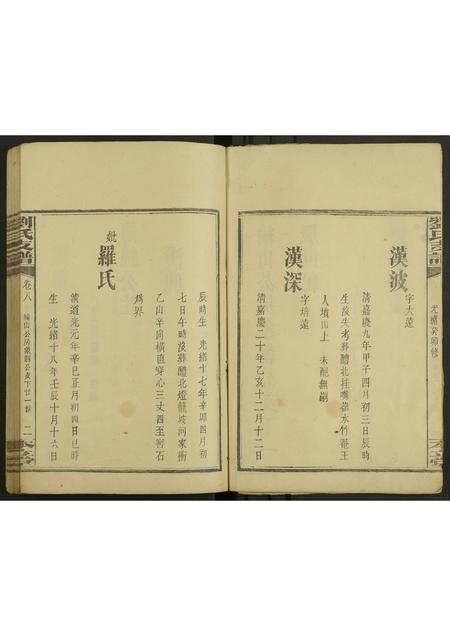 劉氏支譜
光緒癸卯修
漢波
字大遠
清嘉慶九年甲子四月初三日辰時
生歿失考葬醴北桂嘴嶺水竹菴王
人墳山上　未配無嗣
漢深
字培遠
清嘉慶二十年乙亥十二月十二日
辰時生　光緒十七年辛卯四月初
七日午時歿葬醴北燈籠坡河家衝
乙山辛向橫直穿心三丈西至窖石
為界
妣羅氏
清道光元年辛巳正月初四日巳時
生　光緒十八年壬辰十月十六日
劉氏支譜
卷八
公房
公支下廿一派
二